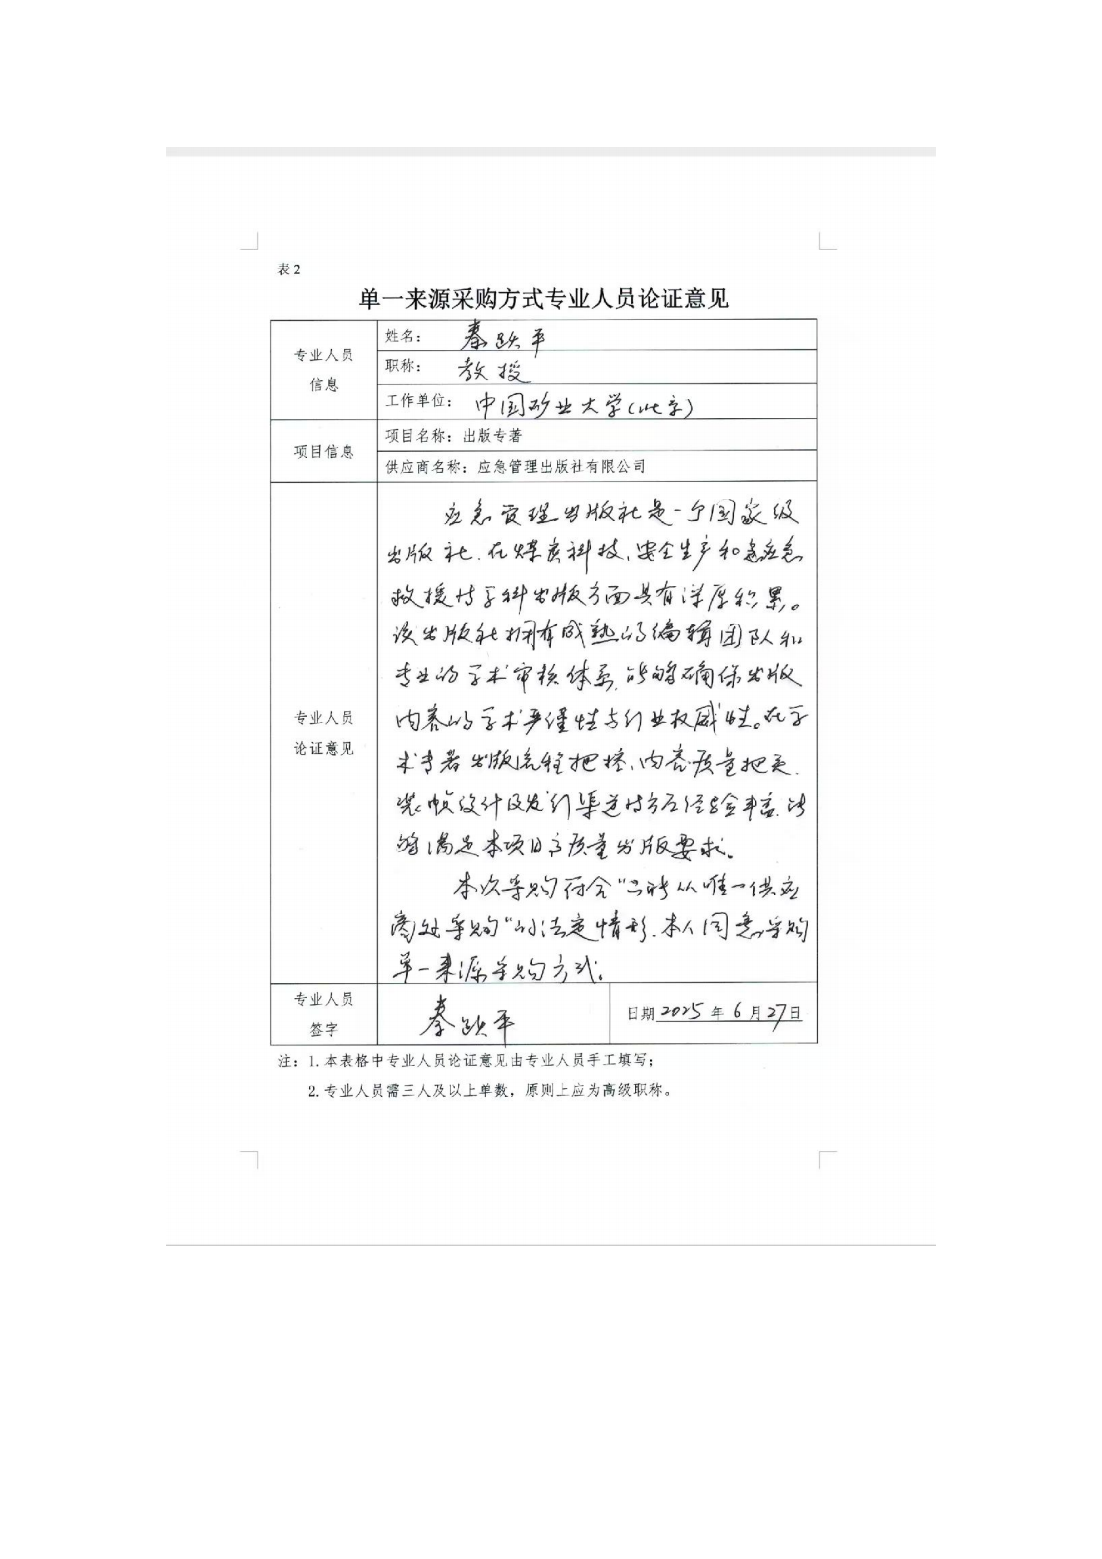 表2
单一来源采购方式专业人员论证意见
专业人员
信息
姓名： 秦跃平
职称： 教授
工作单位： 中国矿业大学(北京)
项目信息
项目名称：出版专著
供应商名称：应急管理出版社有限公司
专业人员
论证意见
应急管理出版社是一个国家级
出版社，在煤炭科技、安全生产和应急
救援等学科出版方面具有深厚积累。
该出版社拥有成熟的编辑团队和
专业的学术审核体系，能够确保出版
内容的学术严谨性与行业权威性。在学
术专著出版流程把控、内容质量把关、
装帧设计及发行渠道等方面经验丰富，能
够满足本项目高质量出版要求。
本次采购符合“只能从唯一供应
商处采购”的法定情形，本人同意采购
单一来源采购方式。
专业人员
签字
秦跃平
日期 2025 年 6 月 27 日
注：1.本表格中专业人员论证意见由专业人员手工填写；
2.专业人员需三人及以上单数，原则上应为高级职称。